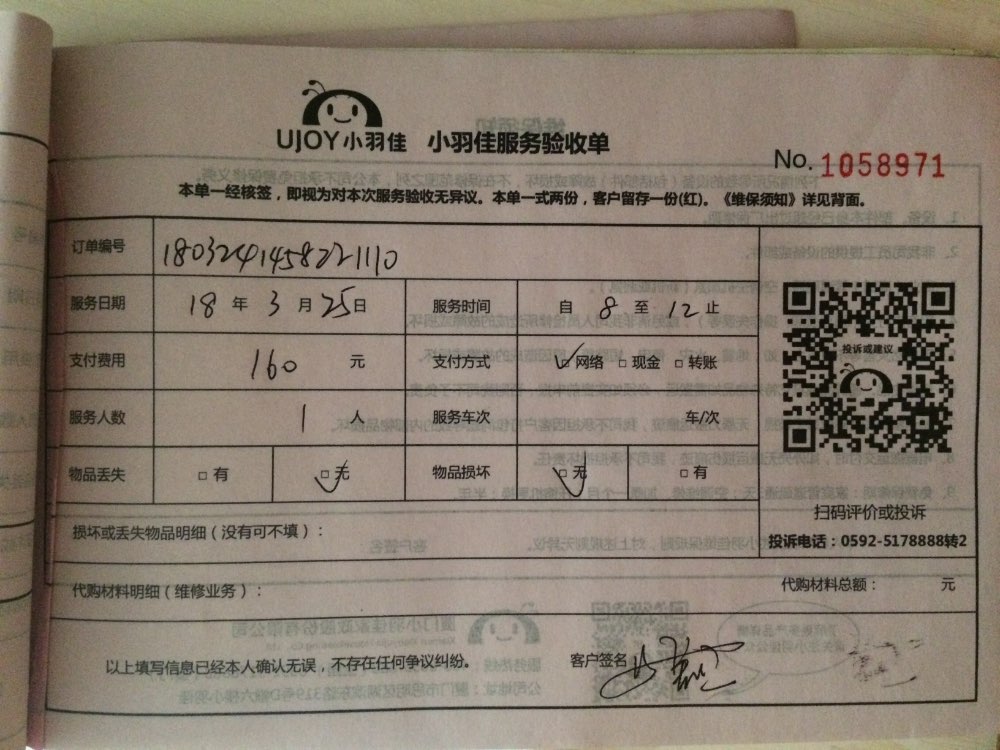 UJOY小羽佳 小羽佳服务验收单
No. 1058971
本单一经核签，即视为对本次服务验收无异议。本单一式两份，客户留存一份(红)。《维保须知》详见背面。
订单编号 1803241458221110
服务日期 18 年 3 月 25 日 服务时间 自 8 至 12 止
支付费用 160 元 支付方式 ☑网络 □现金 □转账
投诉或建议
服务人数 1 人 服务车次 车/次
物品丢失 □有 ☑无 物品损坏 ☑无 □有
扫码评价或投诉
损坏或丢失物品明细（没有可不填）：
投诉电话：0592-5178888转2
代购材料明细（维修业务）： 代购材料总额： 元
以上填写信息已经本人确认无误，不存在任何争议纠纷。 客户签名